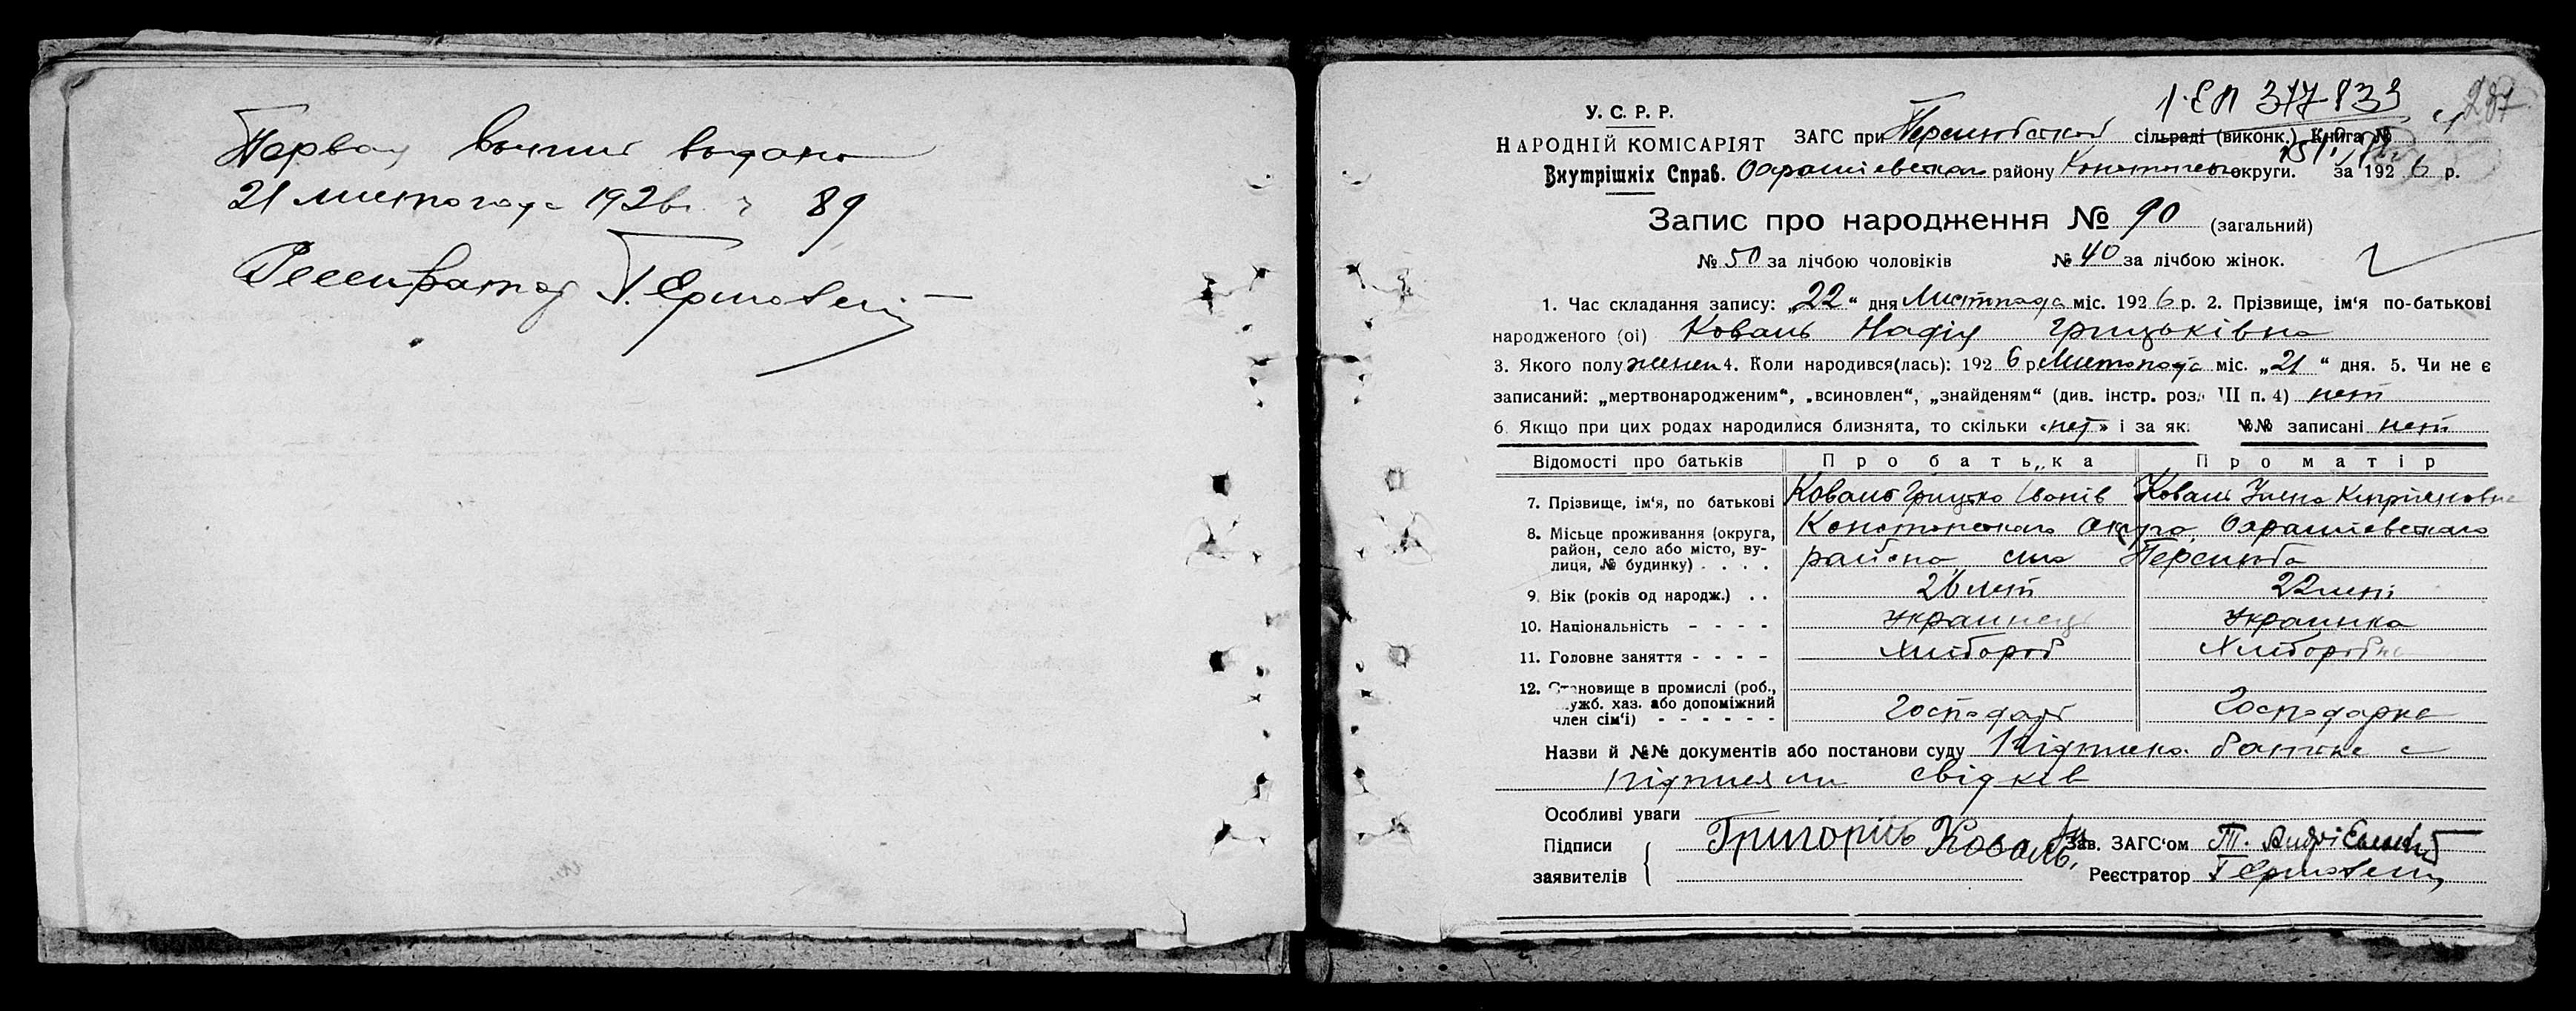 Первая выпись выдана
21 листопада 1926 г. № 89
Реєстратор Т. Ермол
1-ЕП 317833
287
У. С. Р. Р.
НАРОДНІЙ КОМІСАРІЯТ
Внутрішніх Справ.
ЗАГС при сільраді (виконк.) Книга №
району Конотопского округи. за 1926 р.
Запис про народження № 90 (загальний)
№ 50 за лічбою чоловіків № 40 за лічбою жінок.
1. Час складання запису: „22“ дня Листопада міс. 1926 р. 2. Прізвище, ім'я по-батькові
народженого (ої) Коваль Надія Грицьківна
3. Якого полу женск 4. Коли народився(лась): 1926 р Листопада міс. „21“ дня. 5. Чи не є
записаний: „мертвонародженим“, „всиновлен“, „знайденям“ (див. інстр. розд. III п. 4) нет
6. Якщо при цих родах народилися близнята, то скільки «нет» і за як. №№ записані нет
Відомості про батьків Про батька Про матір
7. Прізвище, ім'я, по батькові Коваль Грицько Іванів Коваль Уляна Киприяновна
8. Місьце проживання (округа, район, село або місто, вулиця, № будинку) . . . . Конотопского округа,
района, село
9. Вік (років од народж.) . . 26 лет 22 лет
10. Національність - - - - Украинец Украинка
11. Головне заняття - - - - Хлібороб Хлiборобка
12. Становище в промислі (роб., служб. хаз. або допоміжний член сім'ї) - - - - - - Господарь Господарка
Назви й №№ документів або постанови суду Підписка батька с
підписями свідків
Особливі уваги
Підписи заявителів Григорий Коваль
Зав. ЗАГС'ом Т.
Реєстратор Т Ермол